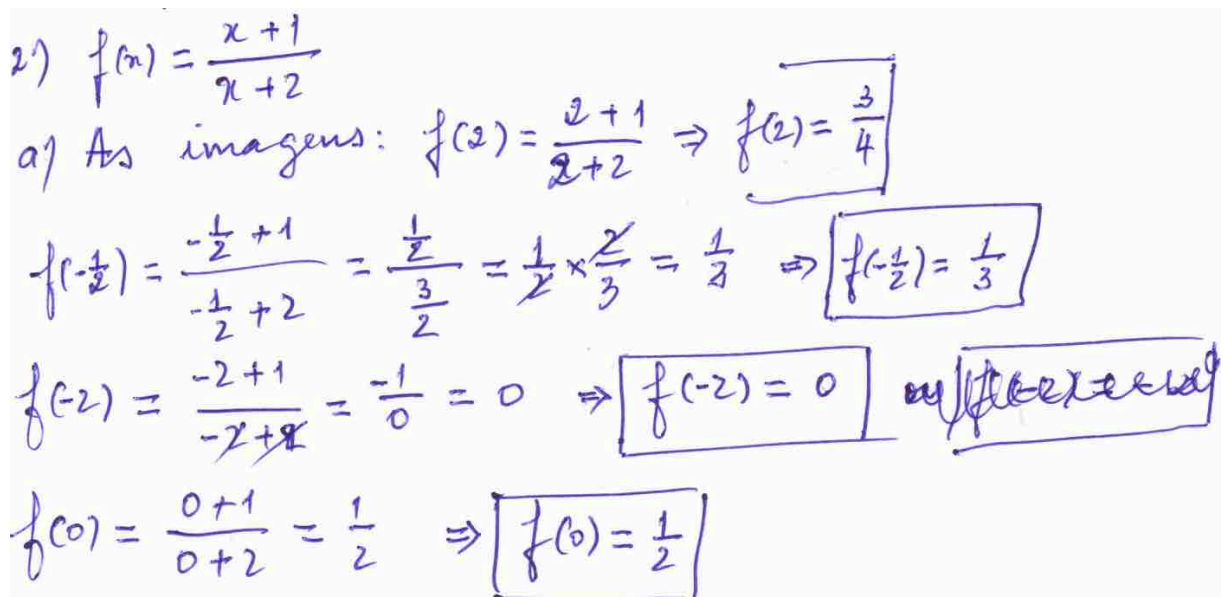 2) f(x) = \frac{x+1}{x+2}
a) As imagens: f(2) = \frac{2+1}{2+2} ⇒ f(2) = \frac{3}{4}
f(-\frac{1}{2}) = \frac{-\frac{1}{2}+1}{-\frac{1}{2}+2} = \frac{\frac{1}{2}}{\frac{3}{2}} = \frac{1}{2} × \frac{2}{3} = \frac{1}{3} ⇒ f(-\frac{1}{2}) = \frac{1}{3}
f(-2) = \frac{-2+1}{-2+2} = \frac{-1}{0} = 0 ⇒ f(-2) = 0
f(0) = \frac{0+1}{0+2} = \frac{1}{2} ⇒ f(0) = \frac{1}{2}